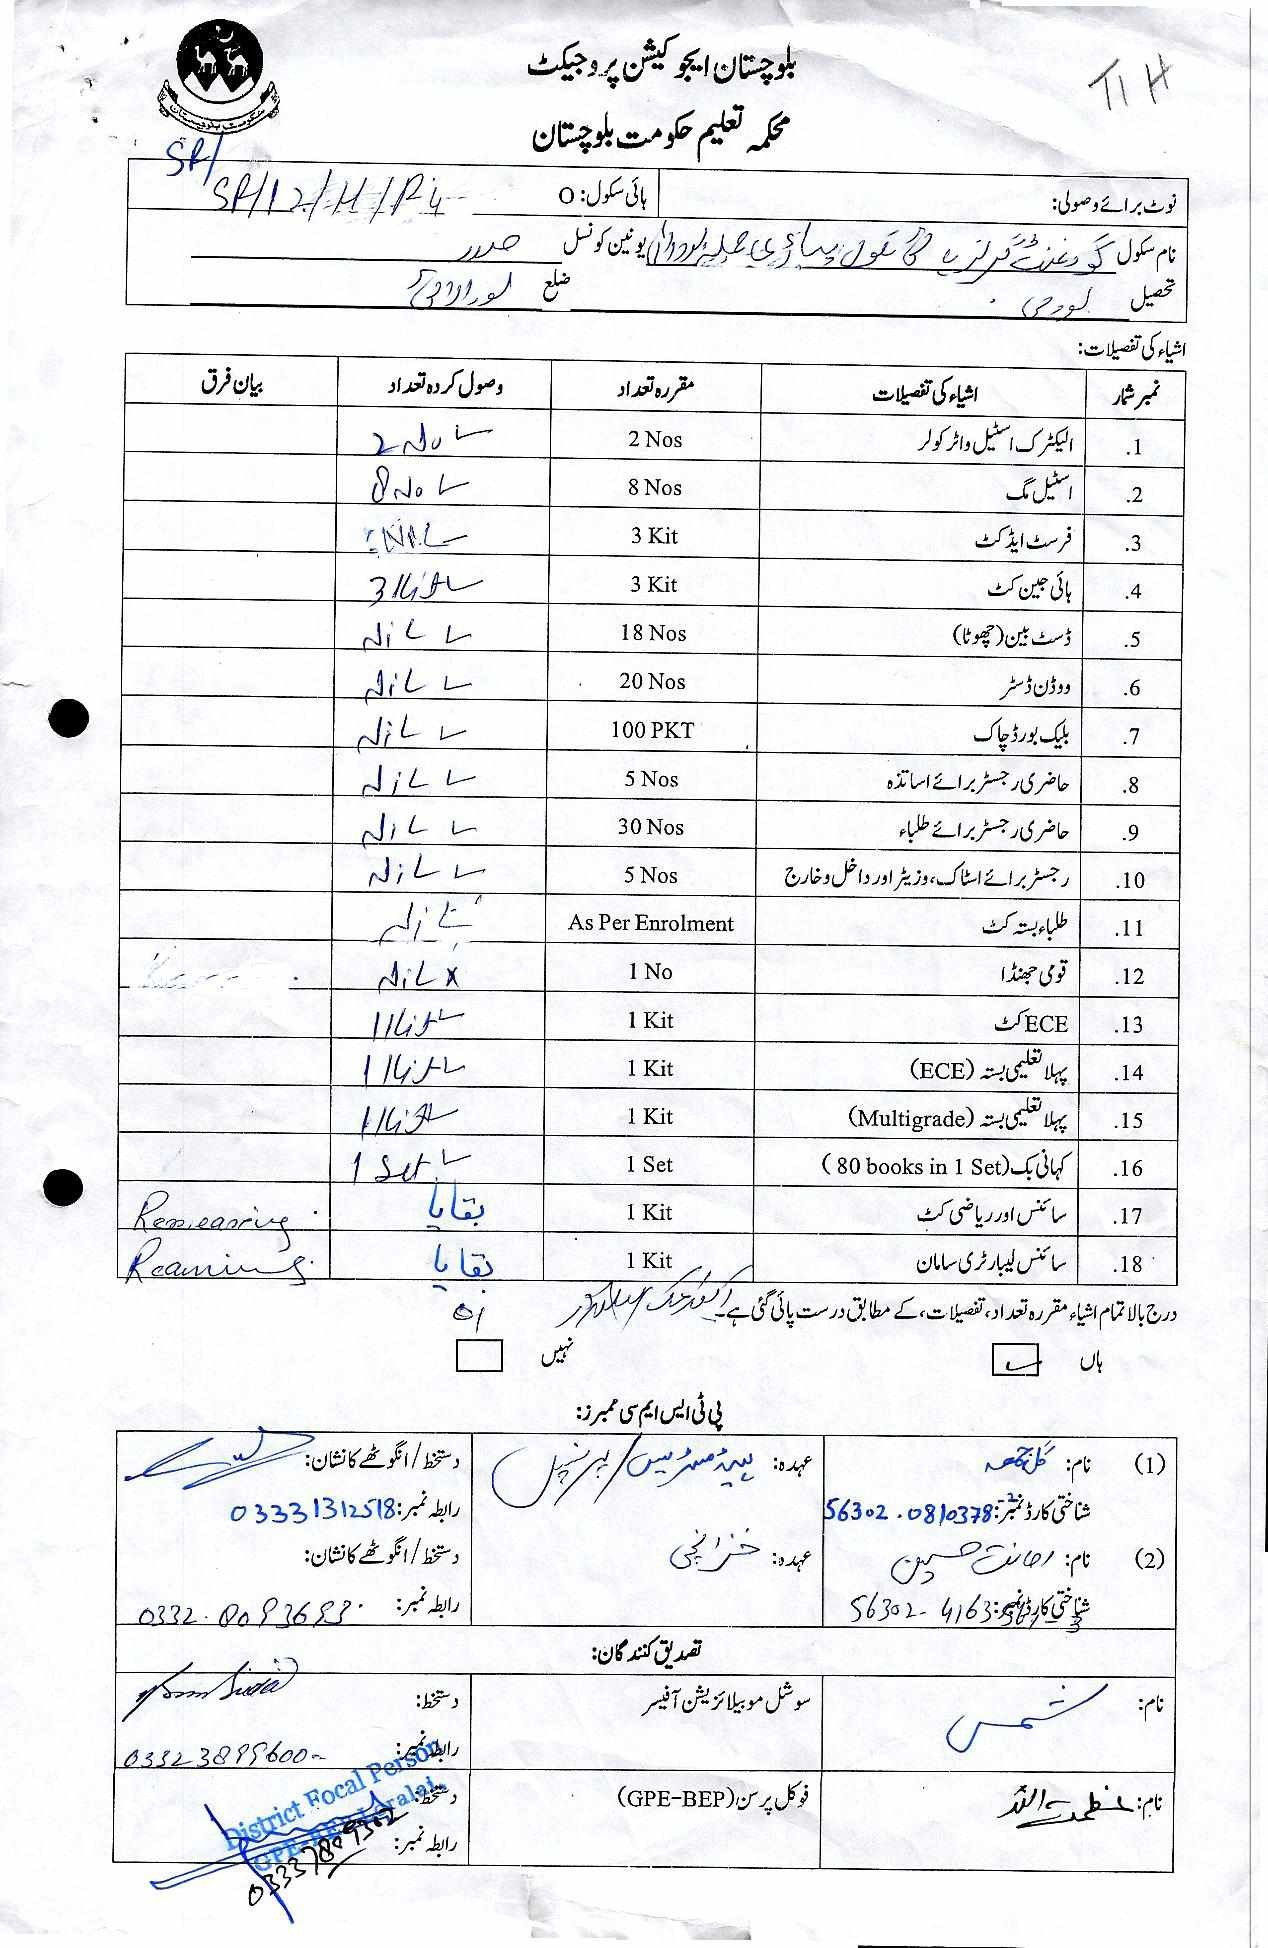 بلوچستان ایجوکیشن پروجیکٹ
T1 H
محکمہ تعلیم حکومت بلوچستان
حکومت بلوچستان
SR/
نوٹ برائے وصولی: ہائی سکول: O SR/12/H/
نام سکول گورنمنٹ گرلز ہائی سکول پہاڑی محلہ لورالائی یونین کونسل صدر
تحصیل بوری ضلع لورالائی
اشیاء کی تفصیلات:
نمبر شمار اشیاء کی تفصیلات مقررہ تعداد وصول کردہ تعداد بیان فرق
1. الیکٹرک اسٹیل واٹر کولر 2 Nos 2 No
2. اسٹیل مگ 8 Nos 8 No
3. فرسٹ ایڈ کٹ 3 Kit
4. ہائی جین کٹ 3 Kit 3 Kit
5. ڈسٹ بین (چھوٹا) 18 Nos Nil
6. ووڈن ڈسٹر 20 Nos Nil
7. بلیک بورڈ چاک 100 PKT Nil
8. حاضری رجسٹر برائے اساتذہ 5 Nos Nil
9. حاضری رجسٹر برائے طلباء 30 Nos Nil
10. رجسٹر برائے اسٹاک، وزیٹر اور داخل و خارج 5 Nos Nil
11. طلباء بستہ کٹ As Per Enrolment Nil
12. قومی جھنڈا 1 No Nil x
13. ECE کٹ 1 Kit 1 Kit
14. پہلا تعلیمی بستہ (ECE) 1 Kit 1 Kit
15. پہلا تعلیمی بستہ (Multigrade) 1 Kit 1 Kit
16. کہانی بک (80 books in 1 Set) 1 Set 1 Set
17. سائنس اور ریاضی کٹ 1 Kit بقایا Remeaning
18. سائنس لیبارٹری سامان 1 Kit بقایا Reaming
درج بالا تمام اشیاء مقررہ تعداد، تفصیلات، کے مطابق درست پائی گئی ہے۔ 01
ہاں نہیں
پی ٹی ایس ایم سی ممبرز:
(1) نام: گل عہدہ: ہیڈ مسٹریس/پرنسپل دستخط/انگوٹھے کا نشان:
شناختی کارڈ نمبر: 56302-0810378-2 رابطہ نمبر: 03331312518
(2) نام: حسین عہدہ: خزانچی دستخط/انگوٹھے کا نشان:
شناختی کارڈ نمبر: 56302-4163 رابطہ نمبر: 0332-
تصدیق کنندگان:
نام: شمس سوشل موبیلائزیشن آفیسر دستخط:
رابطہ نمبر: 03323899600
نام: عظمت اللہ فوکل پرسن (GPE-BEP) دستخط:
رابطہ نمبر: 03337809302
District Focal Person
GPE-BEP Loralai